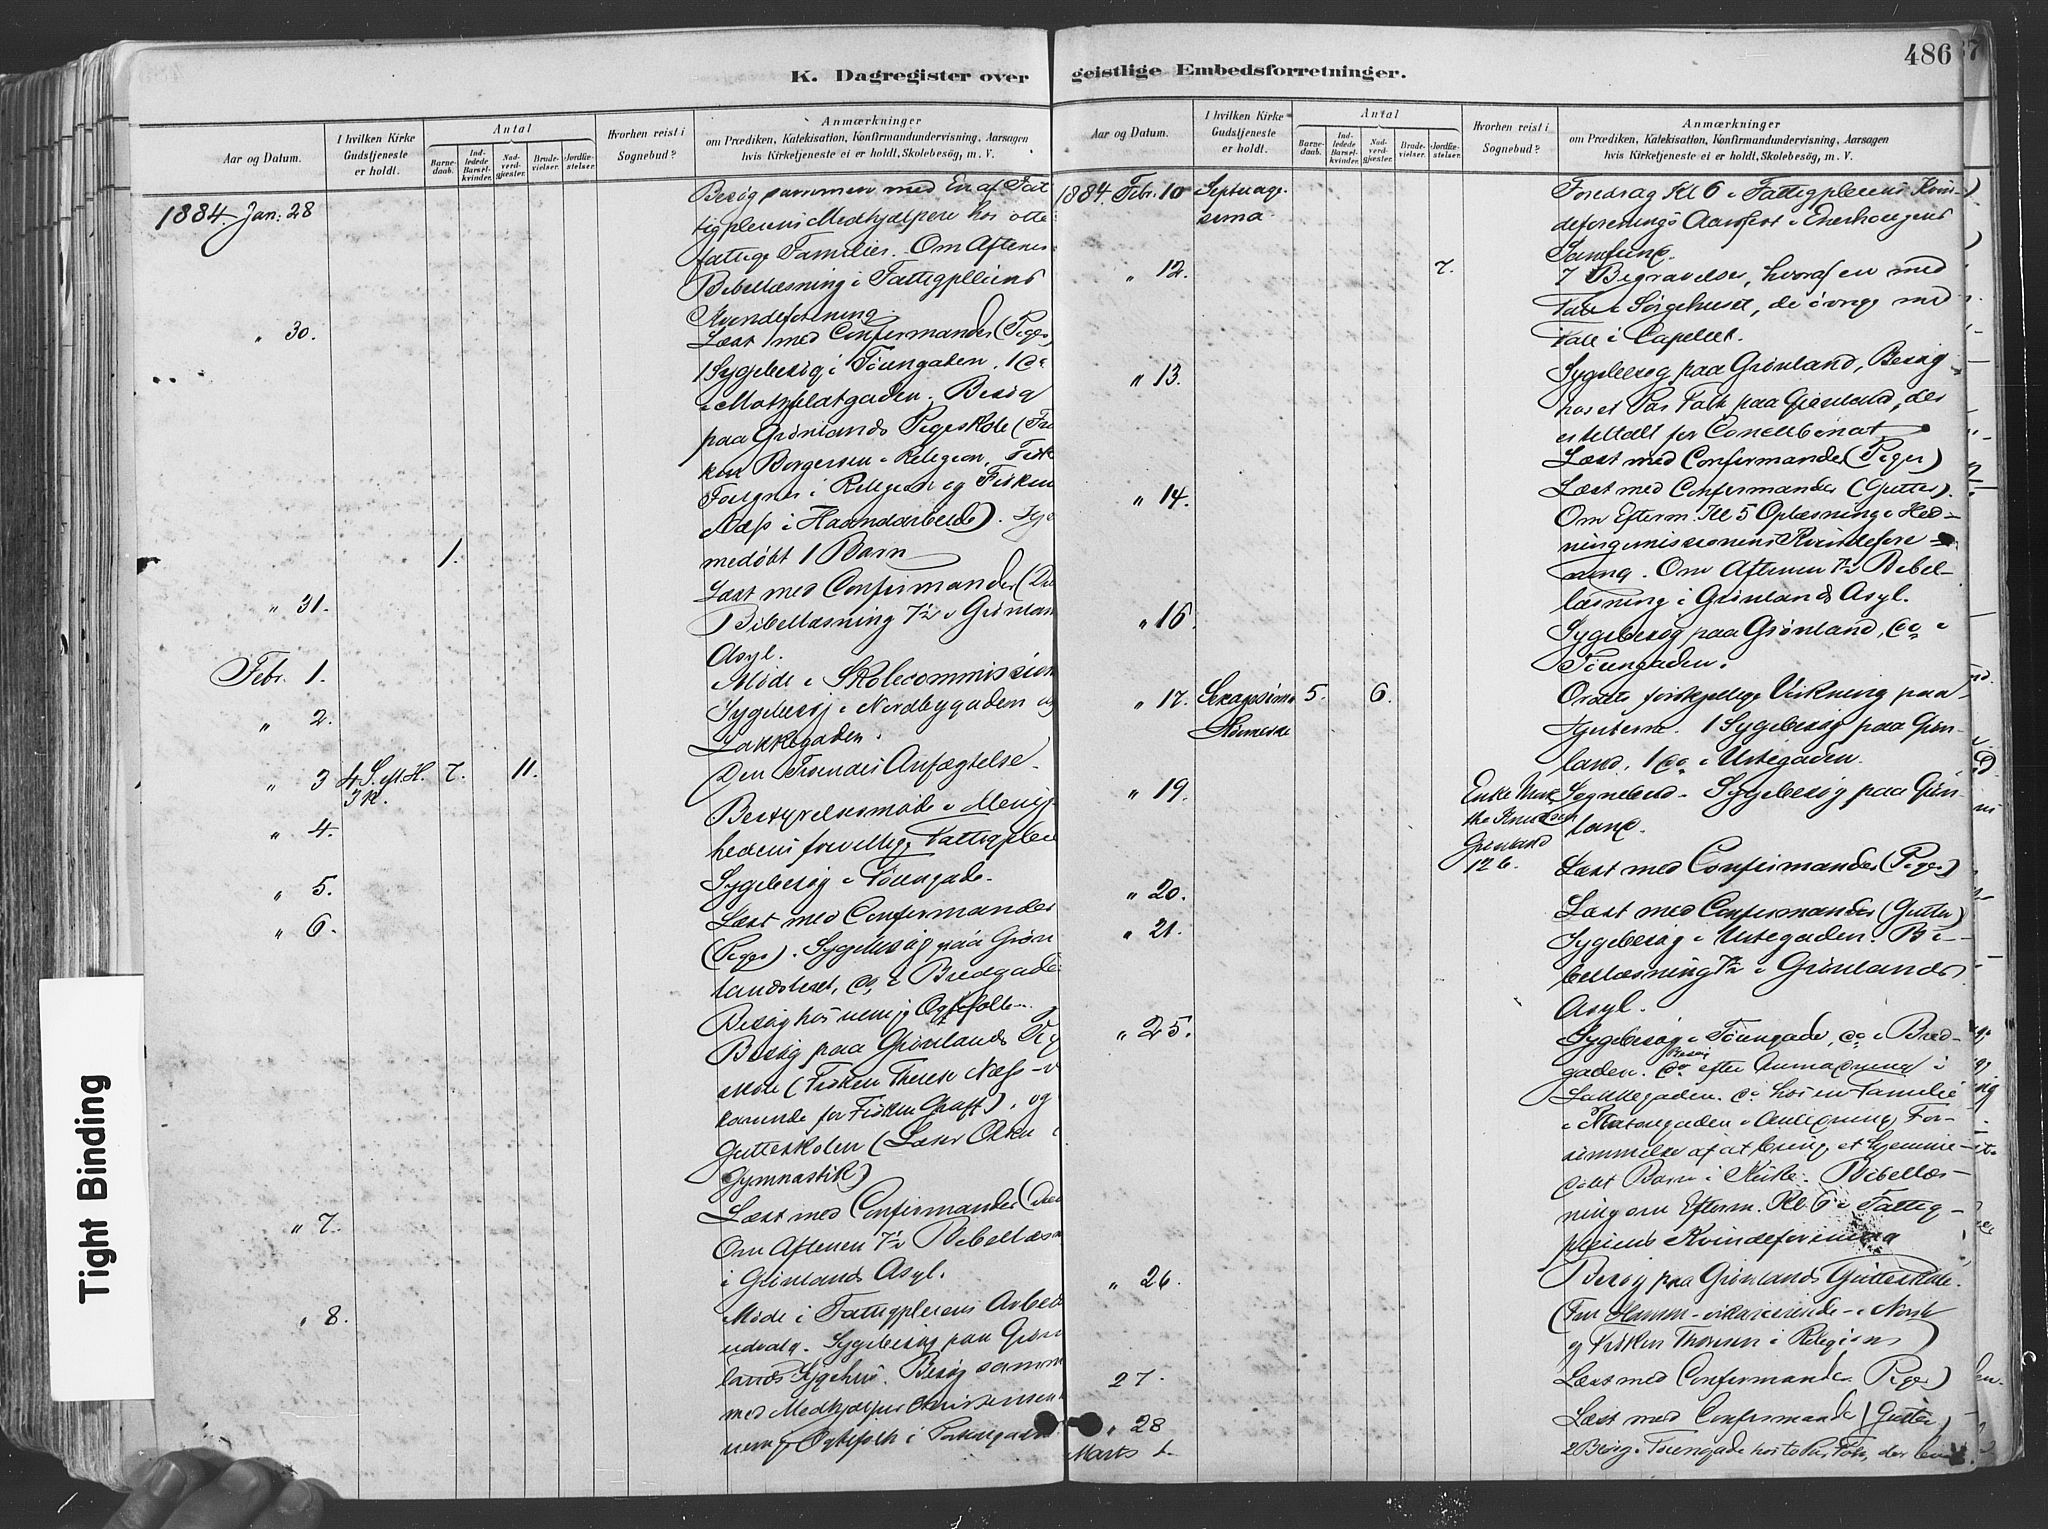 K. Dagregister over geistlige Embedsforretninger.
486
Aar og Datum.
I hvilken Kirke Gudstjeneste er holdt.
Antal
Barnedaab.
Indledede Barselkvinder.
Nadverdgjæster.
Brudevielser.
Jordfæstelser.
Hvorhen reist i Sognebud?
Anmærkninger
om Prædiken, Katekisation, Konfirmandundervisning, Aarsagen
hvis Kirketjeneste ei er holdt, Skolebesøg, m. V.
1884. Jan. 28
Besøg sammen med En af Fat
tigpleiens Medhjælpere hos otte
fattige Familier. Om Aftenen
Bibellæsning i Fattigpleiens
Kvindeforening
" 30.
Læst med Confirmander (Piger)
1 Sygebesøg i Tøiengaden. 1 do
i Motzfeldtgaden. Besøg
paa Grønlands Pigeskole (Frø
ken Borgersen i Religion, Frøk
i Religion og Frøken
Næss i Haandarbeide).
1.
medøbt 1 Barn
" 31.
Læst med Confirmander
Bibellæsning 7½ i Grønlan
Asyl.
Febr. 1.
Møde i Skolecommission
" 2.
Sygebesøg i Nordbygaden og
Lakkegaden.
" 3
4 S. eft. H.
3 K.
7.
11.
Den Troendes Anfægtelse.
" 4.
Bestyrelsesmøde i Menig
hedens frivillige Fattigplei
" 5.
Sygebesøg i Tøiengade.
" 6.
Læst med Confirmander
(Piger). Sygebesøg paa Grøn
landsleret, do i Bredgade
Besøg hos uenig Ægtefolk
Besøg paa Grønlands Pig
skole (Frøken Therese Næss v
karierende for Frøken Graff), og
Gutteskolen (Lærer Olsen i
Gymnastik)
" 7.
Læst med Confirmander
Om Aftenen 7½ Bibellæsn
i Grønlands Asyl.
" 8.
Møde i Fattigpleiens Arbeid
udvalg. Sygebesøg paa Grøn
lands Sygehus. Besøg samm
med Medhjælper Christensen
uenig Ægtefolk i
Aar og Datum.
I hvilken Kirke Gudstjeneste er holdt.
Antal
Barnedaab.
Indledede Barselkvinder.
Nadverdgjæster.
Brudevielser.
Jordfæstelser.
Hvorhen reist i Sognebud?
Anmærkninger
om Prædiken, Katekisation, Konfirmandundervisning, Aarsagen
hvis Kirketjeneste ei er holdt, Skolebesøg, m. V.
1884. Febr. 10
Septuage-
sima.
Foredrag Kl 6 i Fattigpleiens Kvin
deforenings Aarsfest i Enerhougens
Samfund.
" 12.
7.
7 Begravelser, hvoraf en med
Tale i Sørgehuset, de øvrige med
Tale i Capellet.
" 13.
Sygebesøg paa Grønland, Besøg
hos et Par Folk paa Grønland, der
er tiltalt for Concubinat
Læst med Confirmander (Piger)
" 14.
Læst med Confirmander (Gutter).
Om Efterm. Kl 5 Oplæsning i Hed-
ningemissionens Kvindefore
ning. Om Aftenen 7½ Bibel-
læsning i Grønlands Asyl.
" 16.
Sygebesøg paa Grønland, do i
Tøiengaden.
" 17.
Sexagesima
5.
6.
Ordets forskjellige Virkning paa
Hjerterne. 1 Sygebesøg paa Grøn-
land, 1 do i Urtegaden.
" 19.
Enke
Grønland
126.
Sognebud - Sygebesøg paa Grøn
land.
" 20.
Læst med Confirmander (Piger)
" 21.
Læst med Confirmander (Gutter)
Sygebesøg i Urtegaden. Bi-
bellæsning 7½ i Grønlands
Asyl.
" 25.
Sygebesøg i Tøiengade, do i Bred-
gaden. Besøg efter Anmodning i
Lakkegaden. do hos en Familie
i Anledning For-
sømmelse af at bringe et hjemme-
døbt Barn i Kirke. Bibellæs-
ning om Efterm. Kl. 6 i Fattig-
pleiens Kvindeforening
" 26.
Besøg paa Grønlands Gutteskole.
(Frk Hansen - vikarierende - i Norsk
og Frøken Thoresen i Religion)
27.
Læst med Confirmander Piger)
" 28
Læst med Confirmander (Gutter)
Marts 1.
2 Besøg i Tøiengade hos to Par Folk, der
Tight Binding